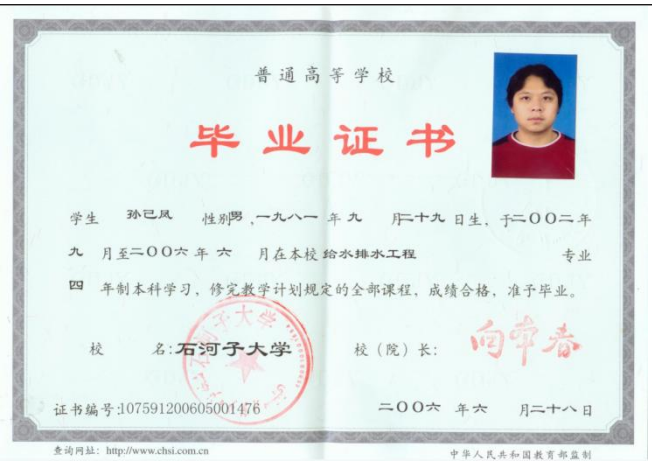 普通高等学校
毕业证书
学生 孙已凤 性别男，一九八一年九月二十九日生，于二〇〇二年
九月至二〇〇六年六月在本校给水排水工程专业
四年制本科学习，修完教学计划规定的全部课程，成绩合格，准予毕业。
校 名：石河子大学 校（院）长：
证书编号:107591200605001476 二〇〇六年六月二十八日
查询网址：http://www.chsi.com.cn 中华人民共和国教育部监制